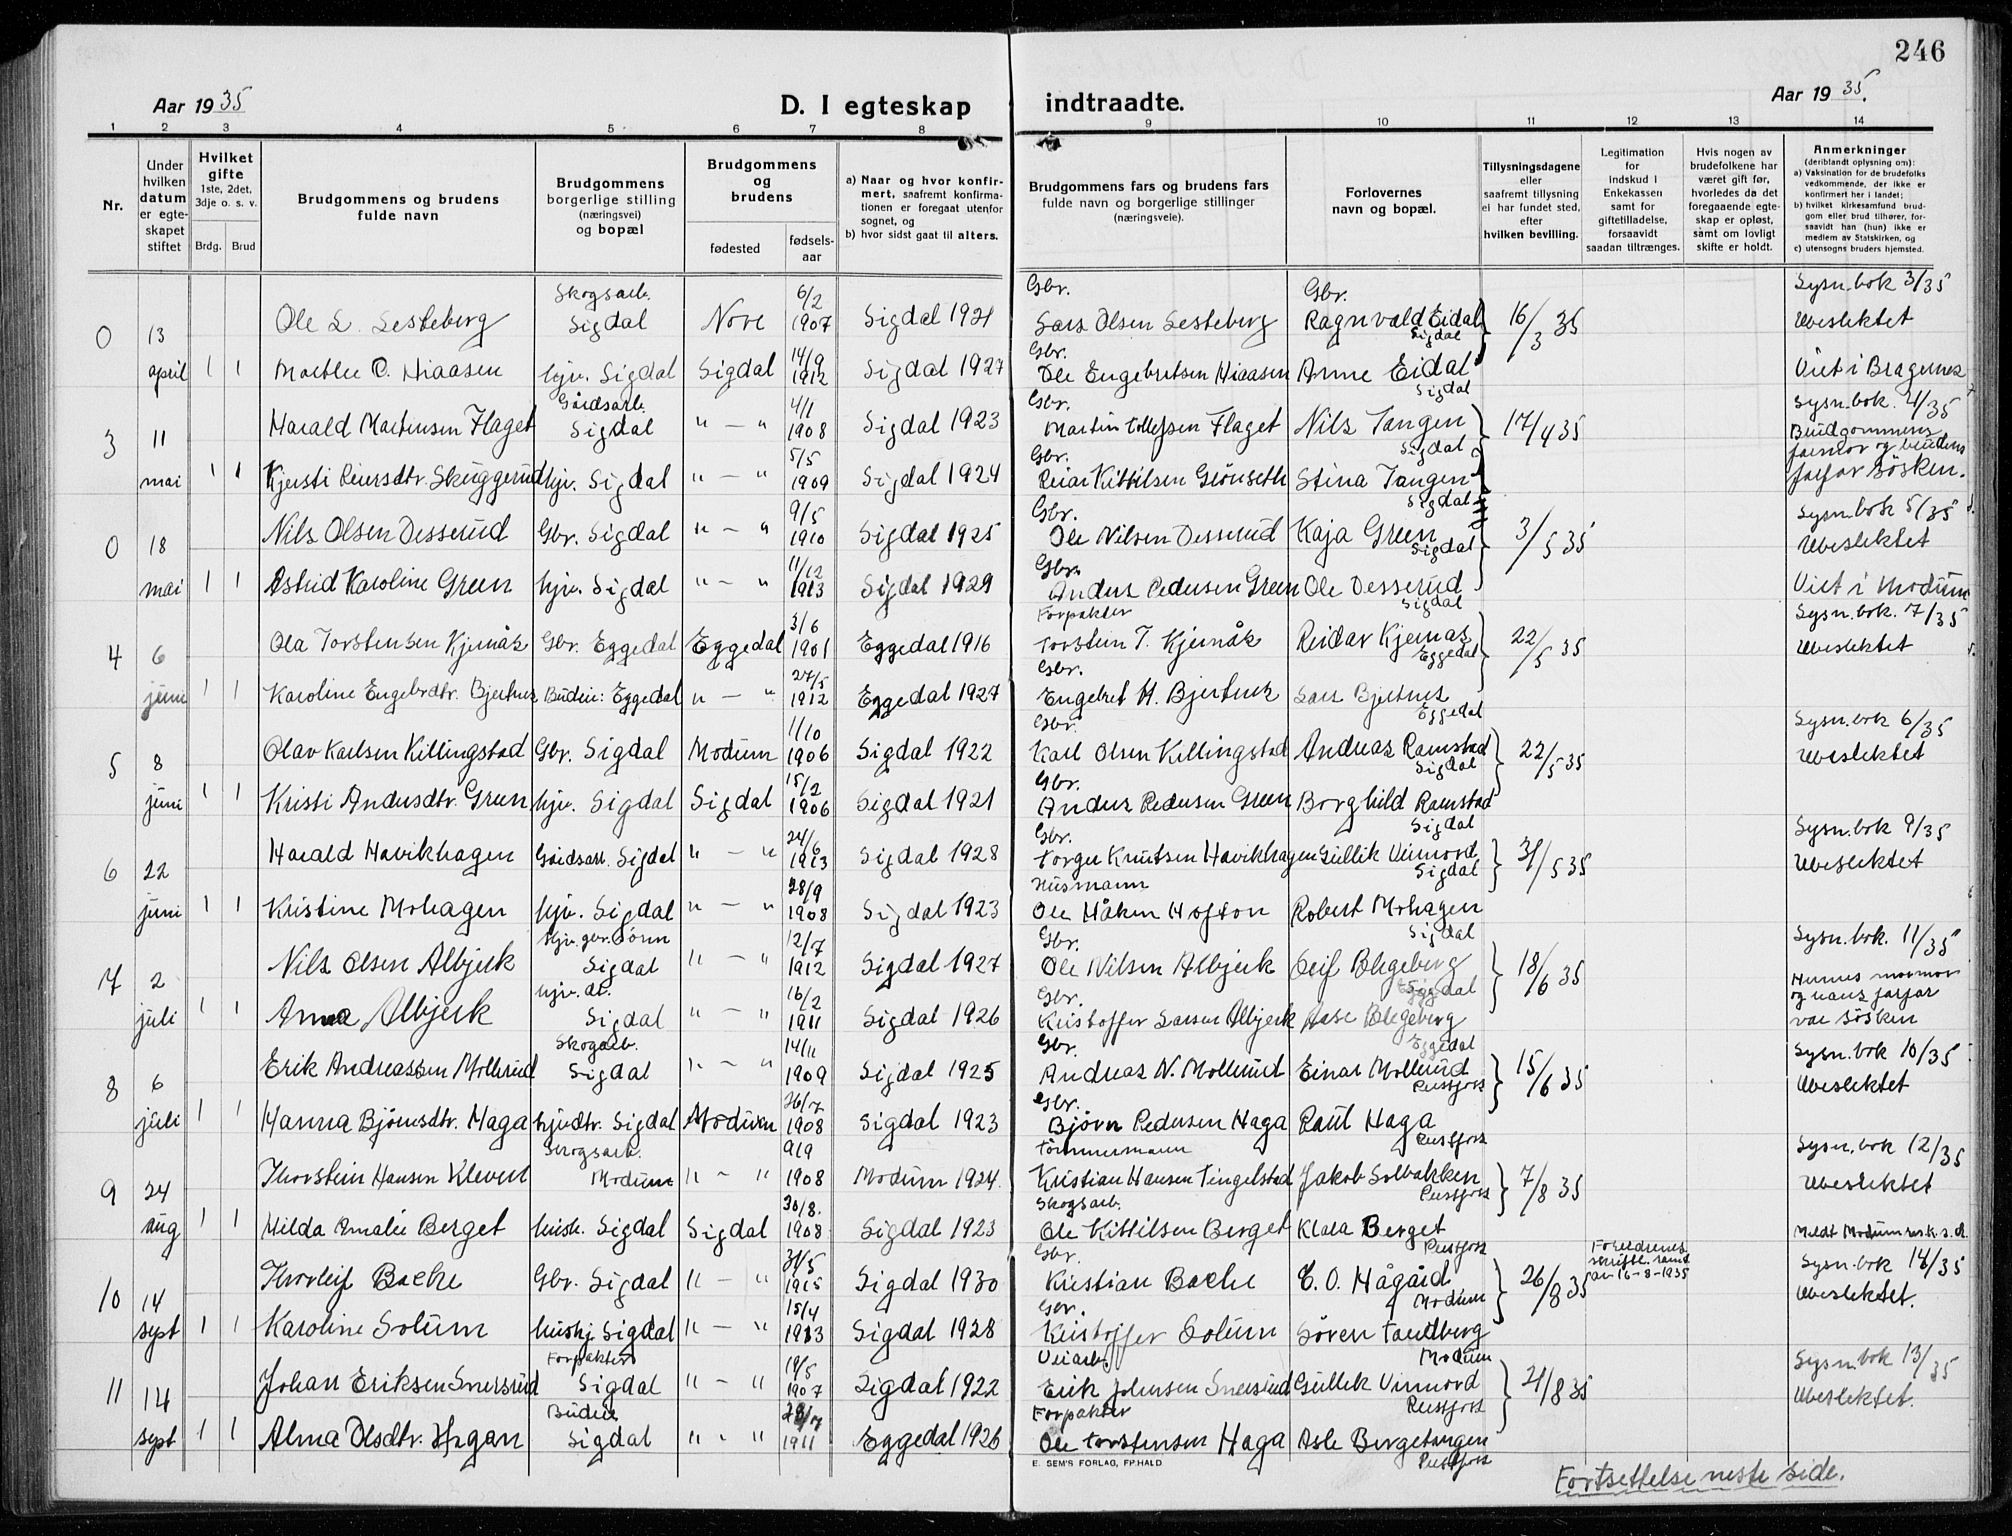 246
Aar 1935
D. I egteskap indtraadte.
Aar 1935.
1 2 3 4 5 6 7 8 9 10 11 12 13 14
Nr.
Under hvilken datum er egteskapet stiftet
Hvilket gifte
1ste, 2det, 3dje o. s. v.
Brdg. Brud
Brudgommens og brudens fulde navn
Brudgommens borgerlige stilling (næringsvei) og bopæl
Brudgommens og brudens
fødested
fødsels-aar
a) Naar og hvor konfirmert, saafremt konfirmationen er foregaat utenfor sognet, og
b) hvor sidst gaat til alters.
Brudgommens fars og brudens fars
fulde navn og borgerlige stillinger
(næringsveie).
Forlovernes
navn og bopæl.
Tillysningsdagene
eller
saafremt tillysning
ei har fundet sted,
efter
hvilken bevilling.
Legitimation
for
indskud i
Enkekassen
samt for
giftetilladelse,
forsaavidt
saadan tiltrænges.
Hvis nogen av
brudefolkene har
været gift før,
hvorledes da det
foregaaende egteskap er opløst,
samt om lovligt
skifte er holdt.
Anmerkninger
(deriblandt oplysning om):
a) Vaksination for de brudefolks
vedkommende, der ikke er
konfirmert her i landet;
b) hvilket kirkesamfund brudgom eller brud tilhører, forsaavidt han (hun) ikke er
medlem av Statskirken, og
c) utensogns bruders hjemsted.
0 13 april 1 1
Ole L. Lesteberg Skogsarb. Sigdal Nore 6/2 1907 Sigdal 1921 Gbr. Lars Olsen Lesteberg Gbr. Ragnvald Eidal Sigdal 16/3 35 Sysn.bok 3/35 Ubeslektet
O. Hiaasen hjv. Sigdal Sigdal 14/9 1912 Sigdal 1927 Gbr. Ole Engebretsen Hiaasen Anne Eidal Sigdal Viet i Bragernes
3 11 mai 1 1
Harald Martinsen Flaget Gårdsarb. Sigdal " — " 4/1 1908 Sigdal 1923 Gbr. Martin Tollefsen Flaget Nils Tangen Sigdal 17/4 35 Sysn.bok. 4/35 Brudgommens farmor og brudens farfar sösken.
Kjersti Reiersdtr. Skuggerud hjv. Sigdal " — " 5/5 1909 Sigdal 1924 Gbr. Reiar Kittilsen Grönseth Stina Tangen Sigdal
0 18 mai 1 1
Nils Olsen Desserud Gbr. Sigdal " — " 9/5 1910 Sigdal 1925 Gbr. Ole Nilsen Desserud Kaja Green Sigdal 3/5 35 Sysn.bok 5/35 Ubeslektet
Astrid Karoline Green hjv. Sigdal " — " 11/12 1913 Sigdal 1929 Gbr. Anders Pedersen Green Ole Desserud Sigdal Viet i Modum
4 6 juni 1 1
Ola Torstensen Kjemås Gbr. Eggedal Eggedal 3/6 1901 Eggedal 1916 Forpakter Torstein T. Kjemås Reidar Kjemas Eggedal 22/5 35 Sysn.bok. 7/35 Ubeslektet
Karoline Engebrdtr. Bjertnes Budeie: Eggedal " — " 27/5 1912 Eggedal 1927 Gbr. Engebret H. Bjertnes Lars Bjertnes Eggedal
5 8 juni 1 1
Olav Karlsen Killingstad Gbr. Sigdal Modum 1/10 1906 Sigdal 1922 Gbr. Karl Olsen Killingstad Andreas Ramstad Sigdal 22/5 35 Sysn.bok 6/35 Ubeslektet
Kristi Andersdtr. Green hjv. Sigdal Sigdal 15/2 1906 Sigdal 1921 Gbr. Anders Pedersen Green Borghild Ramstad Sigdal
6 22 juni 1 1
Harald Havikhagen Gårdsarb. Sigdal " — " 24/6 1913 Sigdal 1928 Gbr. Torger Knutsen Havikhagen Gullik Vinnord Sigdal 31/5 35 Sysn.bok 9/35 Ubeslektet
Kristine Mohagen hjv. Sigdal " — " 28/9 1908 Sigdal 1923 Husmann Ole Håken Hofton Robert Mohagen Sigdal
7 2 juli 1 1
Nils Olsen Albjerk Hjv. gbr. sönn Sigdal " — " 12/7 1912 Sigdal 1927 Gbr. Ole Nilsen Albjerk Leif Blegeberg Eggedal 18/6 35 Sysn.bok. 11/35 Hennes mormor og hans farfar var sösken
Anna Albjerk hjv. dt. Sigdal " — " 16/2 1911 Sigdal 1926 Gbr. Kristoffer Larsen Albjerk Aase Blegeberg Eggedal
8 6 juli 1 1
Erik Andreassen Mollerud Skogarb. Sigdal " — " 14/11 1909 Sigdal 1925 Gbr. Andreas N. Mollerud Einar Mollerud Prestfoss 15/6 35 Sysn.bok 10/35 Ubeslektet
Hanna Björnsdtr. Haga hjvdtr. Sigdal Modum 26/7 1908 Sigdal 1923 Gbr. Björn Pedersen Haga Paul Haga Prestfoss
9 24 aug 1 1
Thorstein Hansen Kleven Skogsarb. Modum " — " 9/9 1908 Modum 1924. Tömmermann Kristian Hansen Tingelstad Jakob Solbakken Prestfoss 7/8 35 Sysn.bok 12/35 Ubeslektet
Hilda Amalie Berget hush. Sigdal Sigdal 30/8. 1908 Sigdal 1923 Skogsarb. Ole Kittilsen Berget Klara Berget Prestfoss Meldt Modum
10 14 sept 1 1
Thorleif Bache Gbr. Sigdal " — " 31/5 1915 Sigdal 1930 Gbr. Kristian Bache C. O. Hågård Modum 26/8 35 Foreldrenes skriftl. samt. av 16-8-1935 Sysn.bok 14/35 Ubeslektet.
Karoline Solum hushj Sigdal " — " 15/4 1913 Sigdal 1928 Gbr. Kristoffer Solum Sören Tandberg Modum
11 14 sept 1 1
Johan Eriksen Snersrud Forpakter Sigdal " — " 19/5 1907 Sigdal 1922 Veiarb. Erik Johnsen Snersrud Gullik Vinnord Prestfoss 21/8 35 Sysn.bok 13/35 Ubeslektet.
Alma Olsdtr. Hagan Budeie Sigdal " - " 1911 Eggedal 1926 Forpakter Ole Torstensen Haga Asle Bergetangen Prestfoss
E. SEM'S FORLAG, FR.HALD
Fortsettelse neste side.